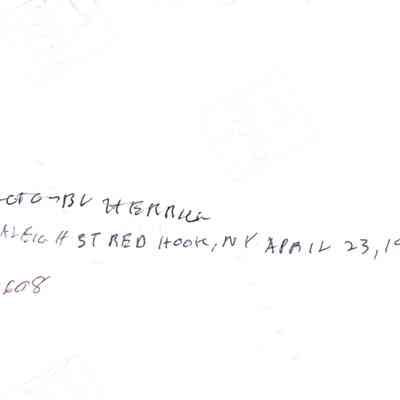 BY HERRICK
RALEIGH ST RED HOOK, NY APRIL 23, 19
608